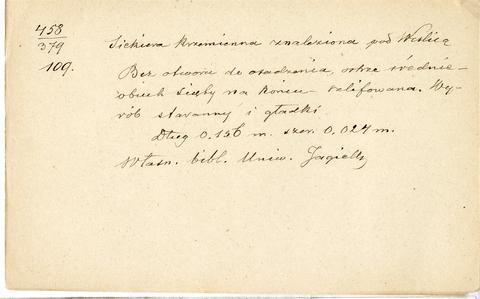 458
379
109.
Siekiera krzemienna znaleziona pod Wiślicą
Bez otworu do osadzenia, ostrze średnie
obuch na końcu szlifowana. Wy-
rób staranny i gładki.
Dług 0,156 m. szer. 0,024 m.
Własn. bibl. Uniw. Jagiell.